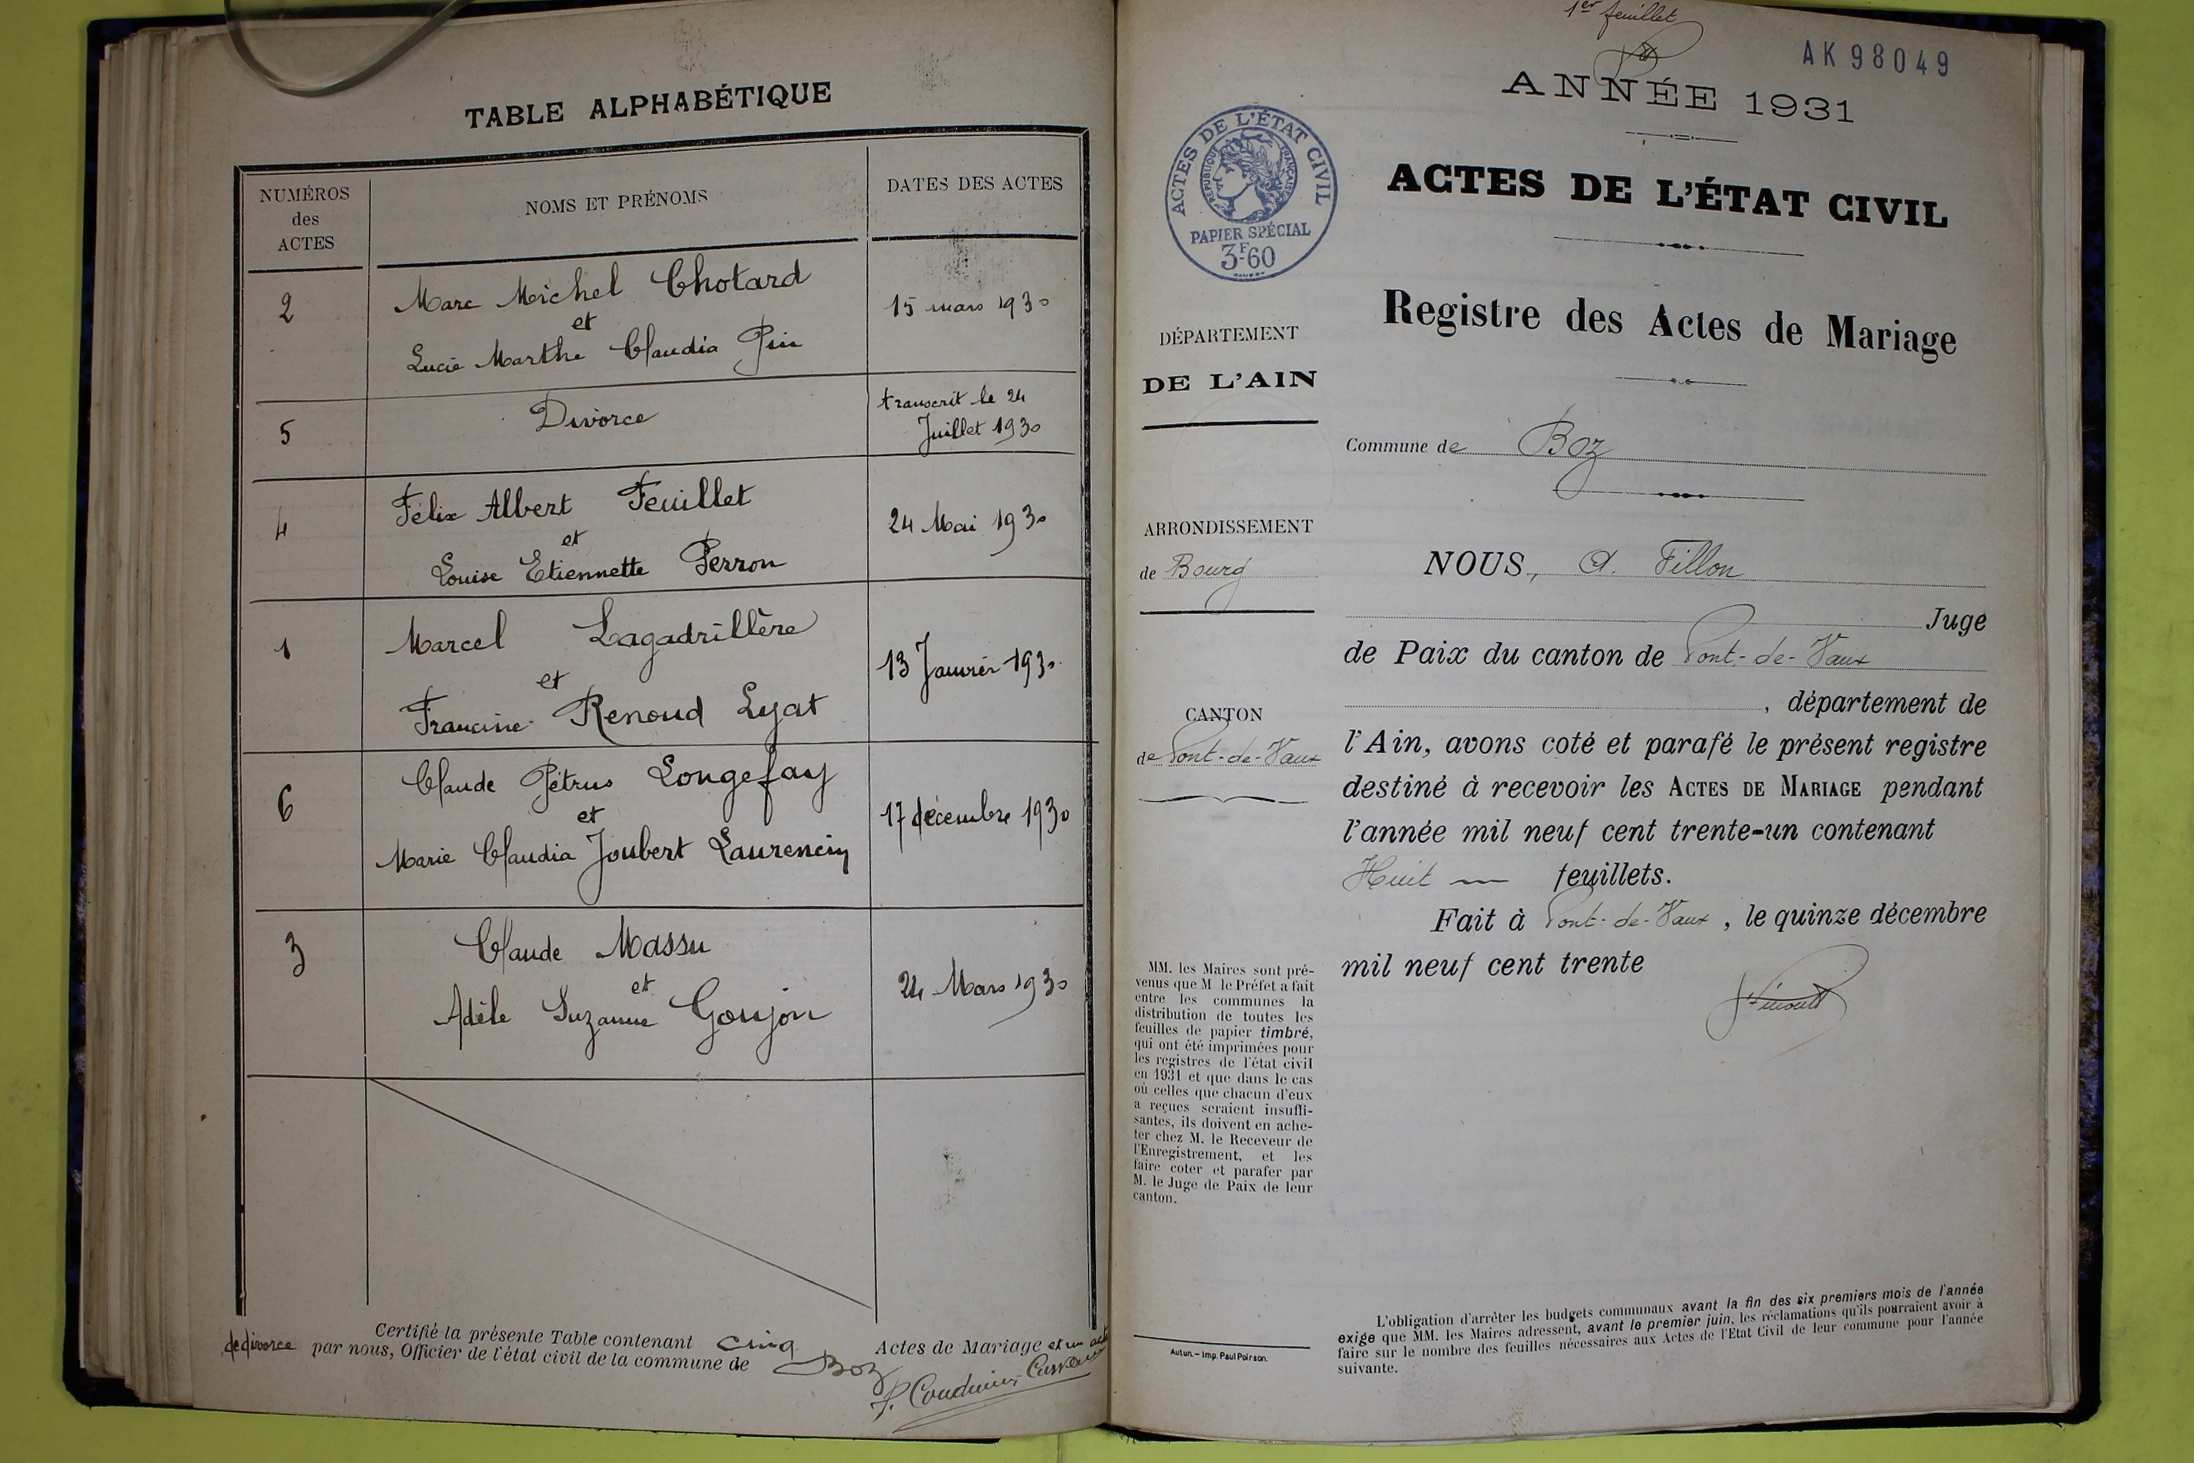 TABLE ALPHABÉTIQUE
NUMÉROS
des
ACTES
NOMS ET PRÉNOMS
DATES DES ACTES
2
Marc Michel Chotard
et
Lucie Marthe Claudia Pin
15 mars 1930
5
Divorce
transcrit le 24
Juillet 1930
4
Félix Albert Feuillet
et
Louise Etiennette Perron
24 Mai 1930
1
Marcel Lagadrillère
et
Francine Renoud Lyat
13 Janvier 1930
6
Claude Pétrus Longefay
et
Marie Claudia Joubert Laurencin
17 décembre 1930
3
Claude Massu
et
Adèle Suzanne Goujon
24 Mars 1930
Certifié la présente Table contenant cinq Actes de Mariage et un acte
de divorce par nous, Officier de l'état civil de la commune de Boz
1er feuillet
AK 98049
ANNÉE 1931
ACTES DE L'ÉTAT CIVIL
RÉPUBLIQUE FRANÇAISE
PAPIER SPÉCIAL
3F60
ACTES DE L'ÉTAT CIVIL
Registre des Actes de Mariage
DÉPARTEMENT
DE L'AIN
Commune de Boz
ARRONDISSEMENT
de Bourg
CANTON
de Pont-de-Vaux
NOUS, A. Fillon
Juge
de Paix du canton de Pont-de-Vaux
, département de
l'Ain, avons coté et parafé le présent registre
destiné à recevoir les ACTES DE MARIAGE pendant
l'année mil neuf cent trente-un contenant
Huit feuillets.
Fait à Pont-de-Vaux, le quinze décembre
mil neuf cent trente
MM. les Maires sont pré-
venus que M le Préfet a fait
entre les communes la
distribution de toutes les
feuilles de papier timbré,
qui ont été imprimées pour
les registres de l'état civil
en 1931 et que dans le cas
où celles que chacun d'eux
a reçues seraient insuffi-
santes, ils doivent en ache-
ter chez M. le Receveur de
l'Enregistrement, et les
faire coter et parafer par
M. le Juge de Paix de leur
canton.
Autun. — Imp. Paul Poirson.
L'obligation d'arrêter les budgets communaux avant la fin des six premiers mois de l'année
exige que MM. les Maires adressent, avant le premier juin, les réclamations qu'ils pourraient avoir à
faire sur le nombre des feuilles nécessaires aux Actes de l'Etat Civil de leur commune pour l'année
suivante.